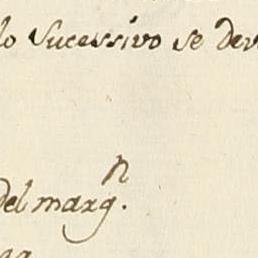 lo sucessivo se dev
del marg.n